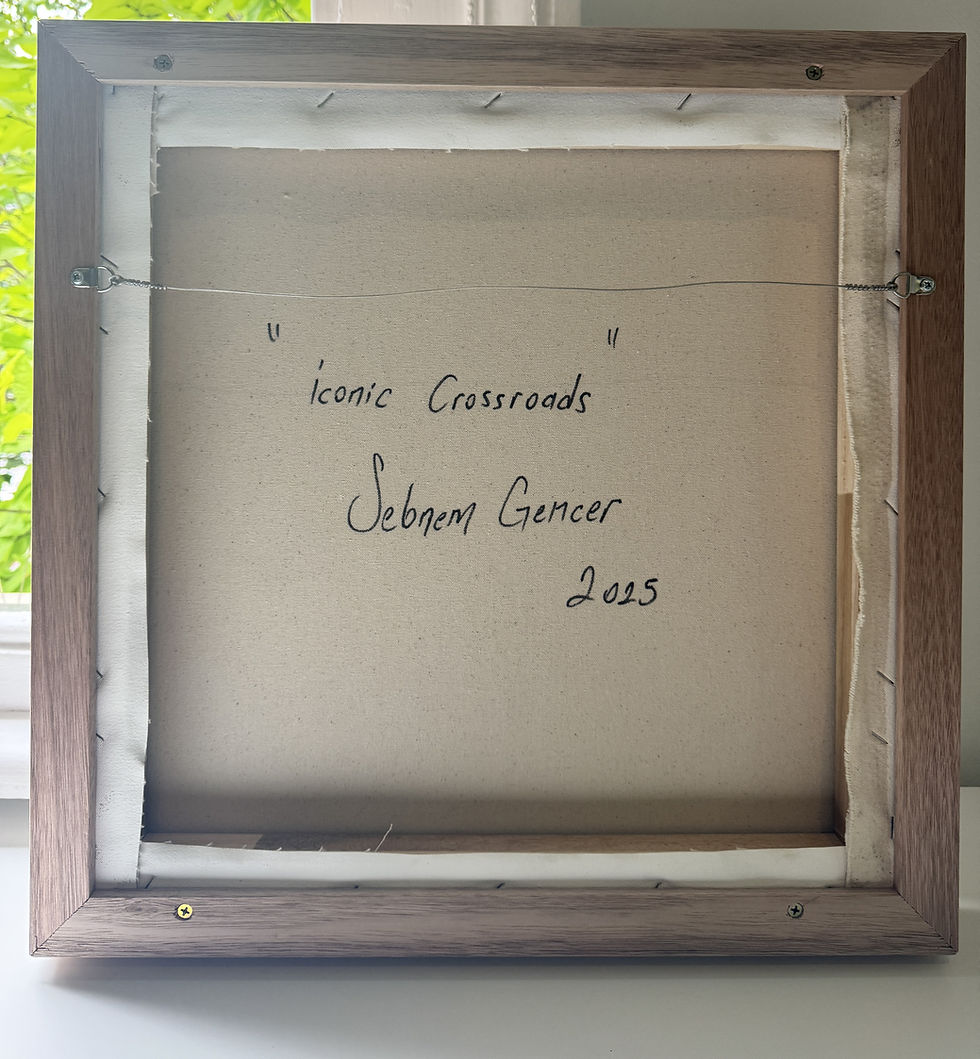 "iconic Crossroads"
Sebnem Gencer
2025